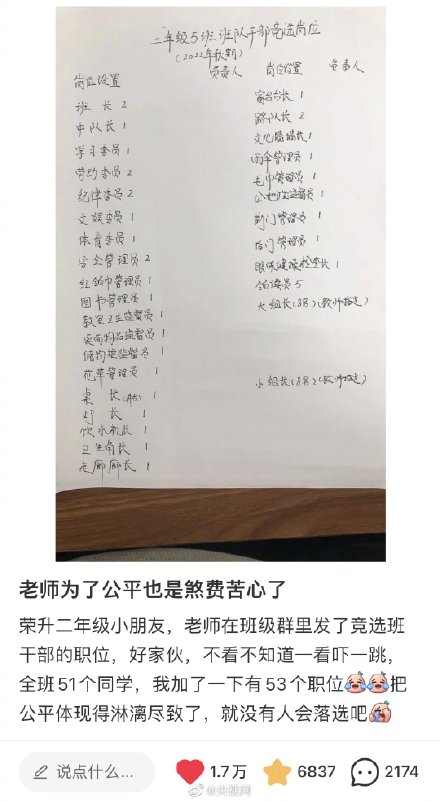 二年级5班班队干部竞选岗位
（2022年秋期）
岗位设置 负责人
班 长 2
中队长 1
学习委员 1
劳动委员 2
纪律委员 2
文娱委员 1
体育委员 1
红领巾管理员 1
图书管理员 1
教室卫生监督员 1
桌面物品监督员 1
花草管理员 1
桌 长 1
灯 长 1
饮水机长 1
卫生角长 1
走廊廊长 1
岗位设置 负责人
窗台台长 1
路队长 2
文化墙墙长 1
雨伞管理员 1
毛巾管理员 1
前门管理员 1
后门管理员 1
眼保健操检查长 1
领读员 5
大组长（8名）（教师指定）
小组长（8名）（教师指定）
老师为了公平也是煞费苦心了
荣升二年级小朋友，老师在班级群里发了竞选班
干部的职位，好家伙，不看不知道一看吓一跳，
全班51个同学，我加了一下有53个职位😂😂把
公平体现得淋漓尽致了，就没有人会落选吧
说点什么... 1.7万 6837 2174
@央视网